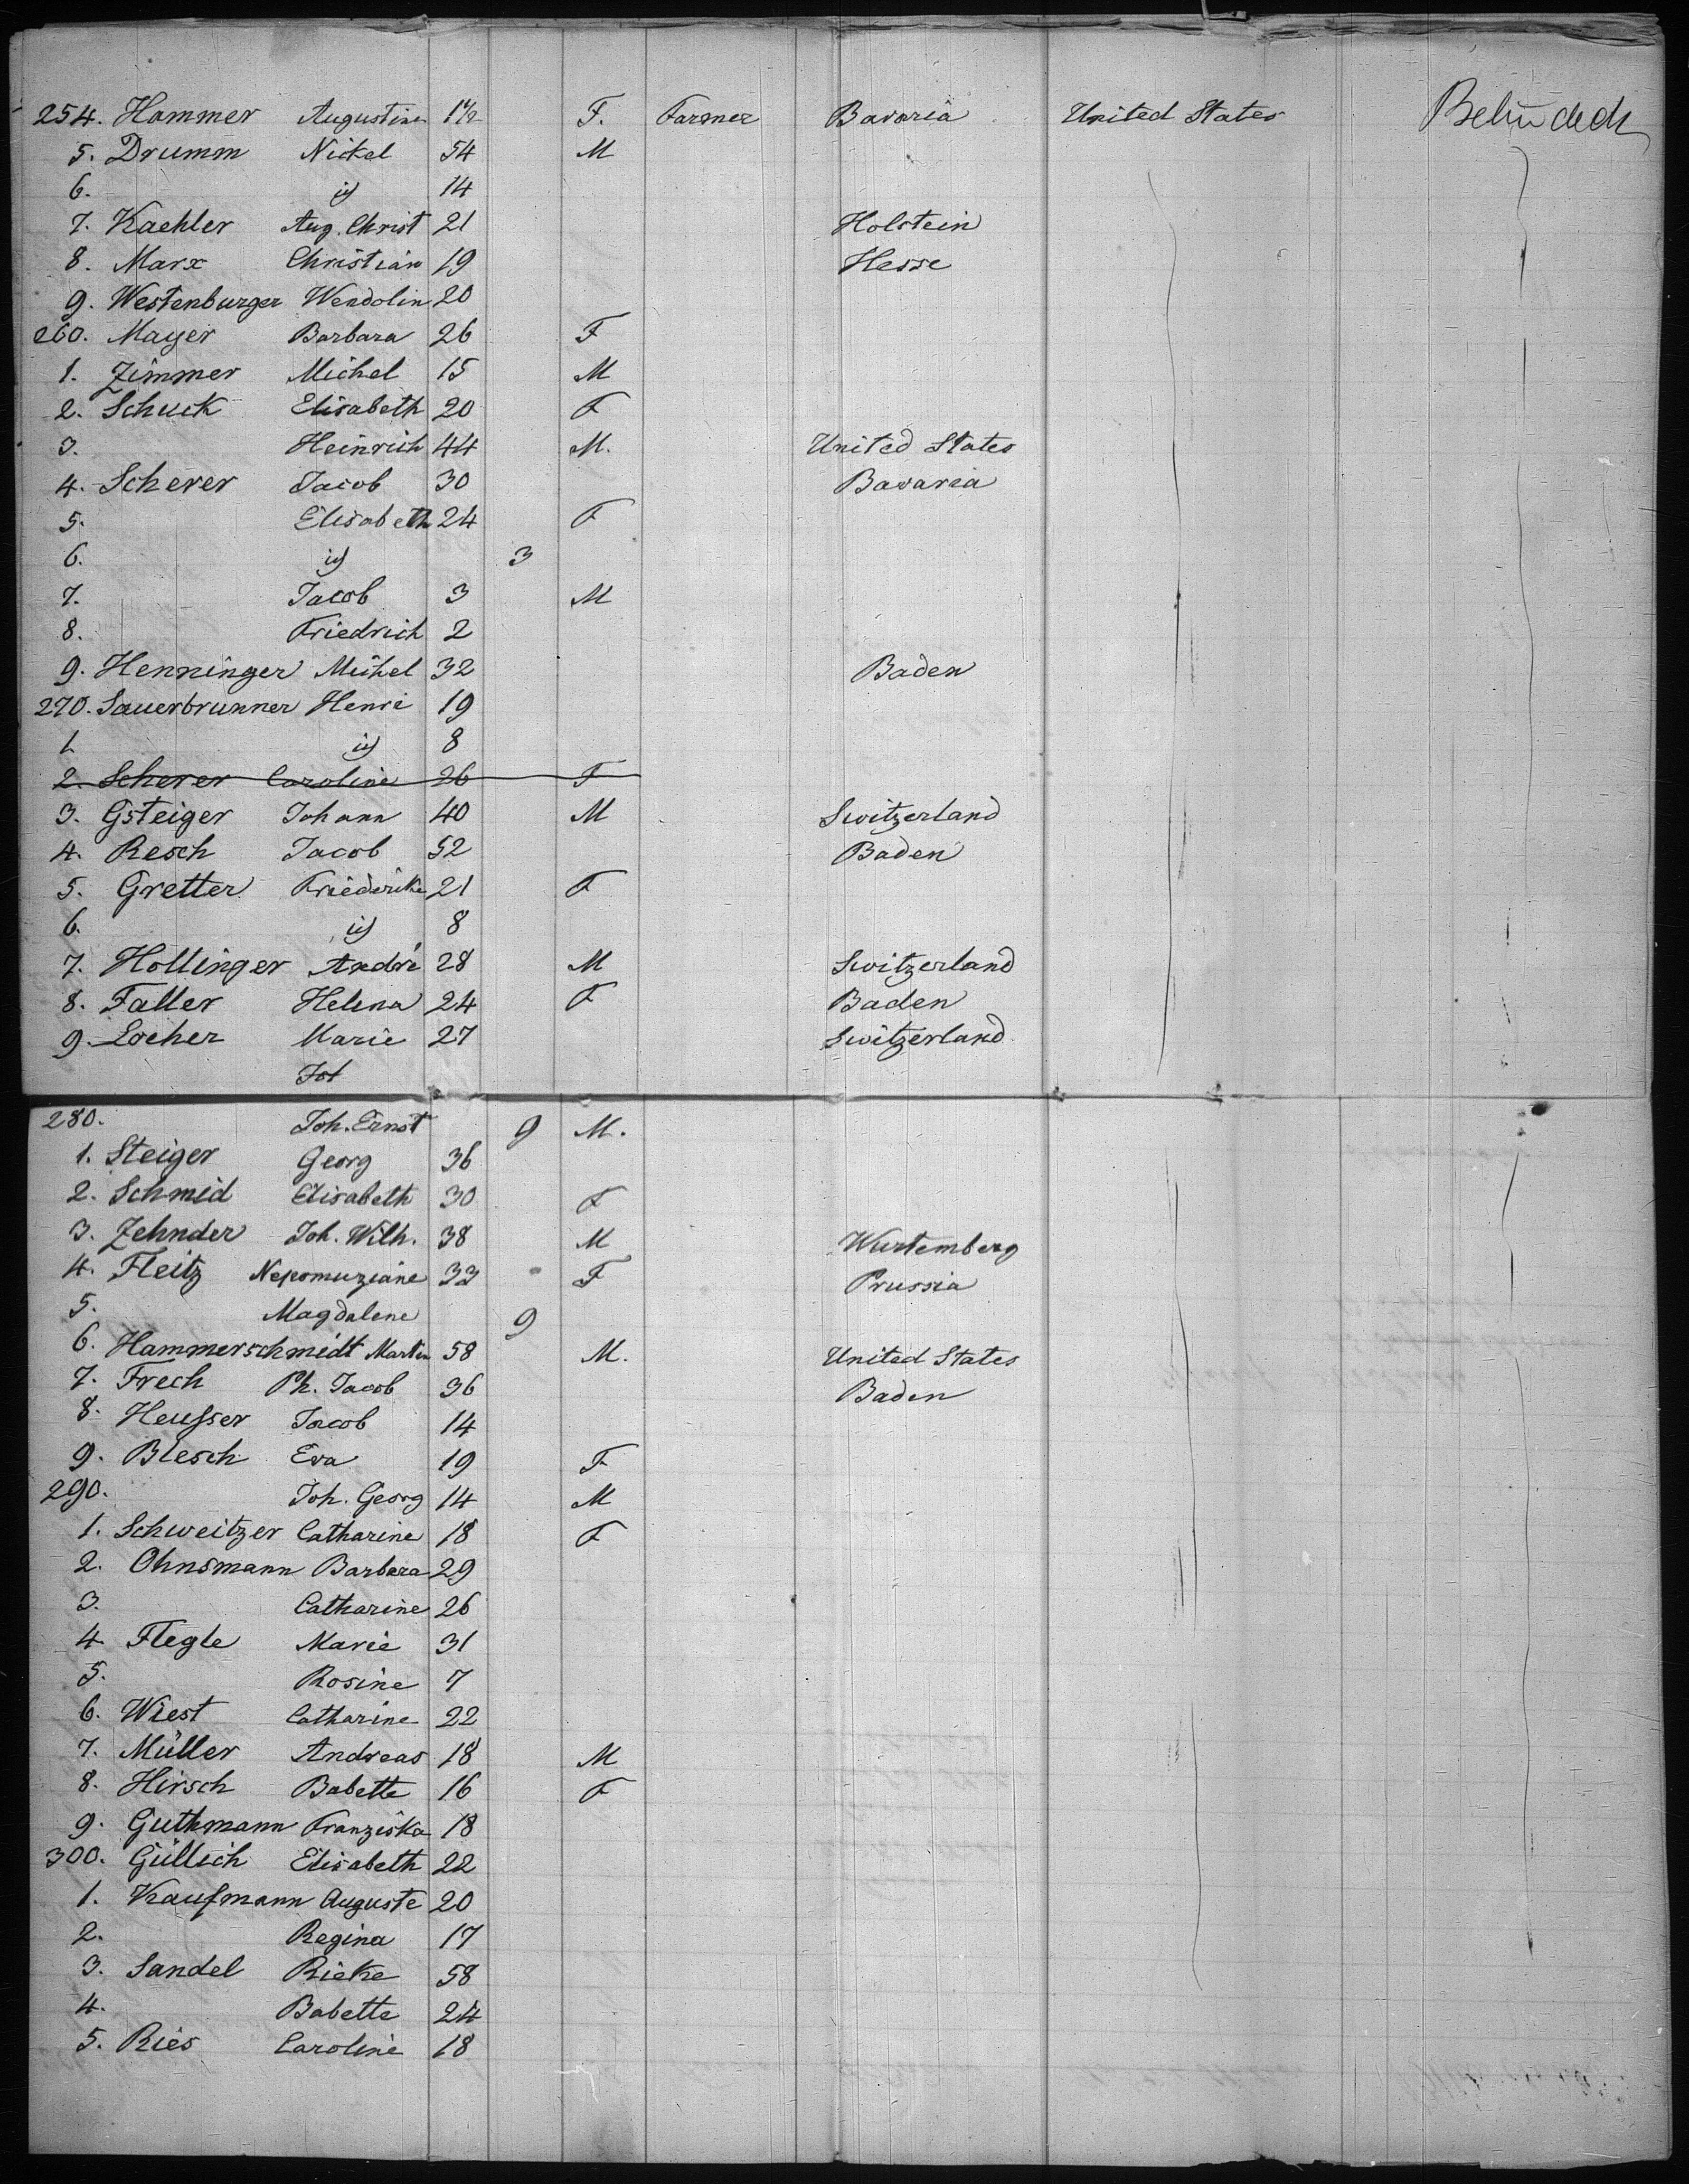 254. Hammer Augustine 1½ F. Farmer Bavaria United States
5. Drumm Nickel 54 M
6. id 14
7. Kaehler Aug. Christ 21 Holstein
8. Marx Christian 19 Hesse
9. Westenburger Wendolin 20
260. Mayer Barbara 26 F
1. Zimmer Michel 15 M
2. Schuck Elisabeth 20 F
3. Heinrich 44 M. United States
4. Scherer Jacob 30 Bavaria
5. Elisabeth 24 F
6. id 3
7. Jacob 3 M
8. Friedrich 2
9. Henninger Michel 32 Baden
270. Sauerbrunner Henri 19
1. id 8
2. Scherer Caroline 26 F
3. Gsteiger Johann 40 M Switzerland
4. Resch Jacob 52 Baden
5. Gretter Friederike 21 F
6. id 8
7. Hollinger André 28 M Switzerland
8. Faller Helena 24 F Baden
9. Locher Marie 27 Switzerland
Jot
280. Joh. Ernst 9 M.
1. Steiger Georg 36
2. Schmid Elisabeth 30 F
3. Zehnder Joh. Wilh. 38 M Wurtemberg
4. Fleitz Nepomuziane 33 F Prussia
5. Magdalene 9
6. Hammerschmidt Martin 58 M. United States
7. Frech Ph. Jacob 36 Baden
8. Heusser Jacob 14
9. Blesch Eva 19 F
290. Joh. Georg 14 M
1. Schweitzer Catharine 18 F
2. Ohnsmann Barbara 29
3. Catharine 26
4 Flegle Marie 31
5. Rosine 7
6. Wiest Catharine 22
7. Müller Andreas 18 M
8. Hirsch Babette 16 F
9. Guthmann Franziska 18
300. Güllich Elisabeth 22
1. Kaufmann Auguste 20
2. Regina 17
3. Sandel Rieke 58
4. Babette 24
5. Ries Caroline 18